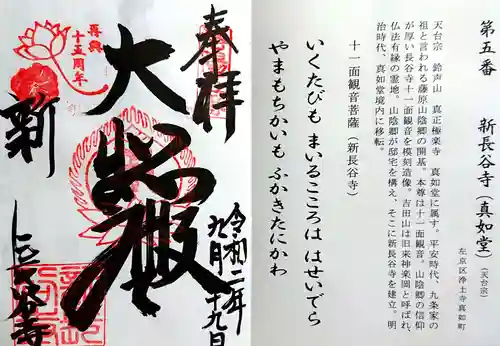 第五番 新長谷寺（真如堂）（天台宗）
左京区浄土寺真如町
天台宗 鈴声山 真正極楽寺 真如堂に属す。平安時代、九条家の
祖と言われる藤原山陰卿の開基。本尊は十一面観音。山陰卿の信仰
が厚い長谷寺十一面観音を模刻造像。吉田山は旧来神楽岡と呼ばれ、
仏法有縁の霊地。山陰卿が邸宅を構え、そこに新長谷寺を建立。明
治時代、真如堂境内に移転。
十一面観音菩薩（新長谷寺）
いくたびも まいるこころは はせいでら
やまもちかいも ふかきたにかわ
奉拝
令和二年
九月二十九日
大
再興
十五周年
新
長谷寺